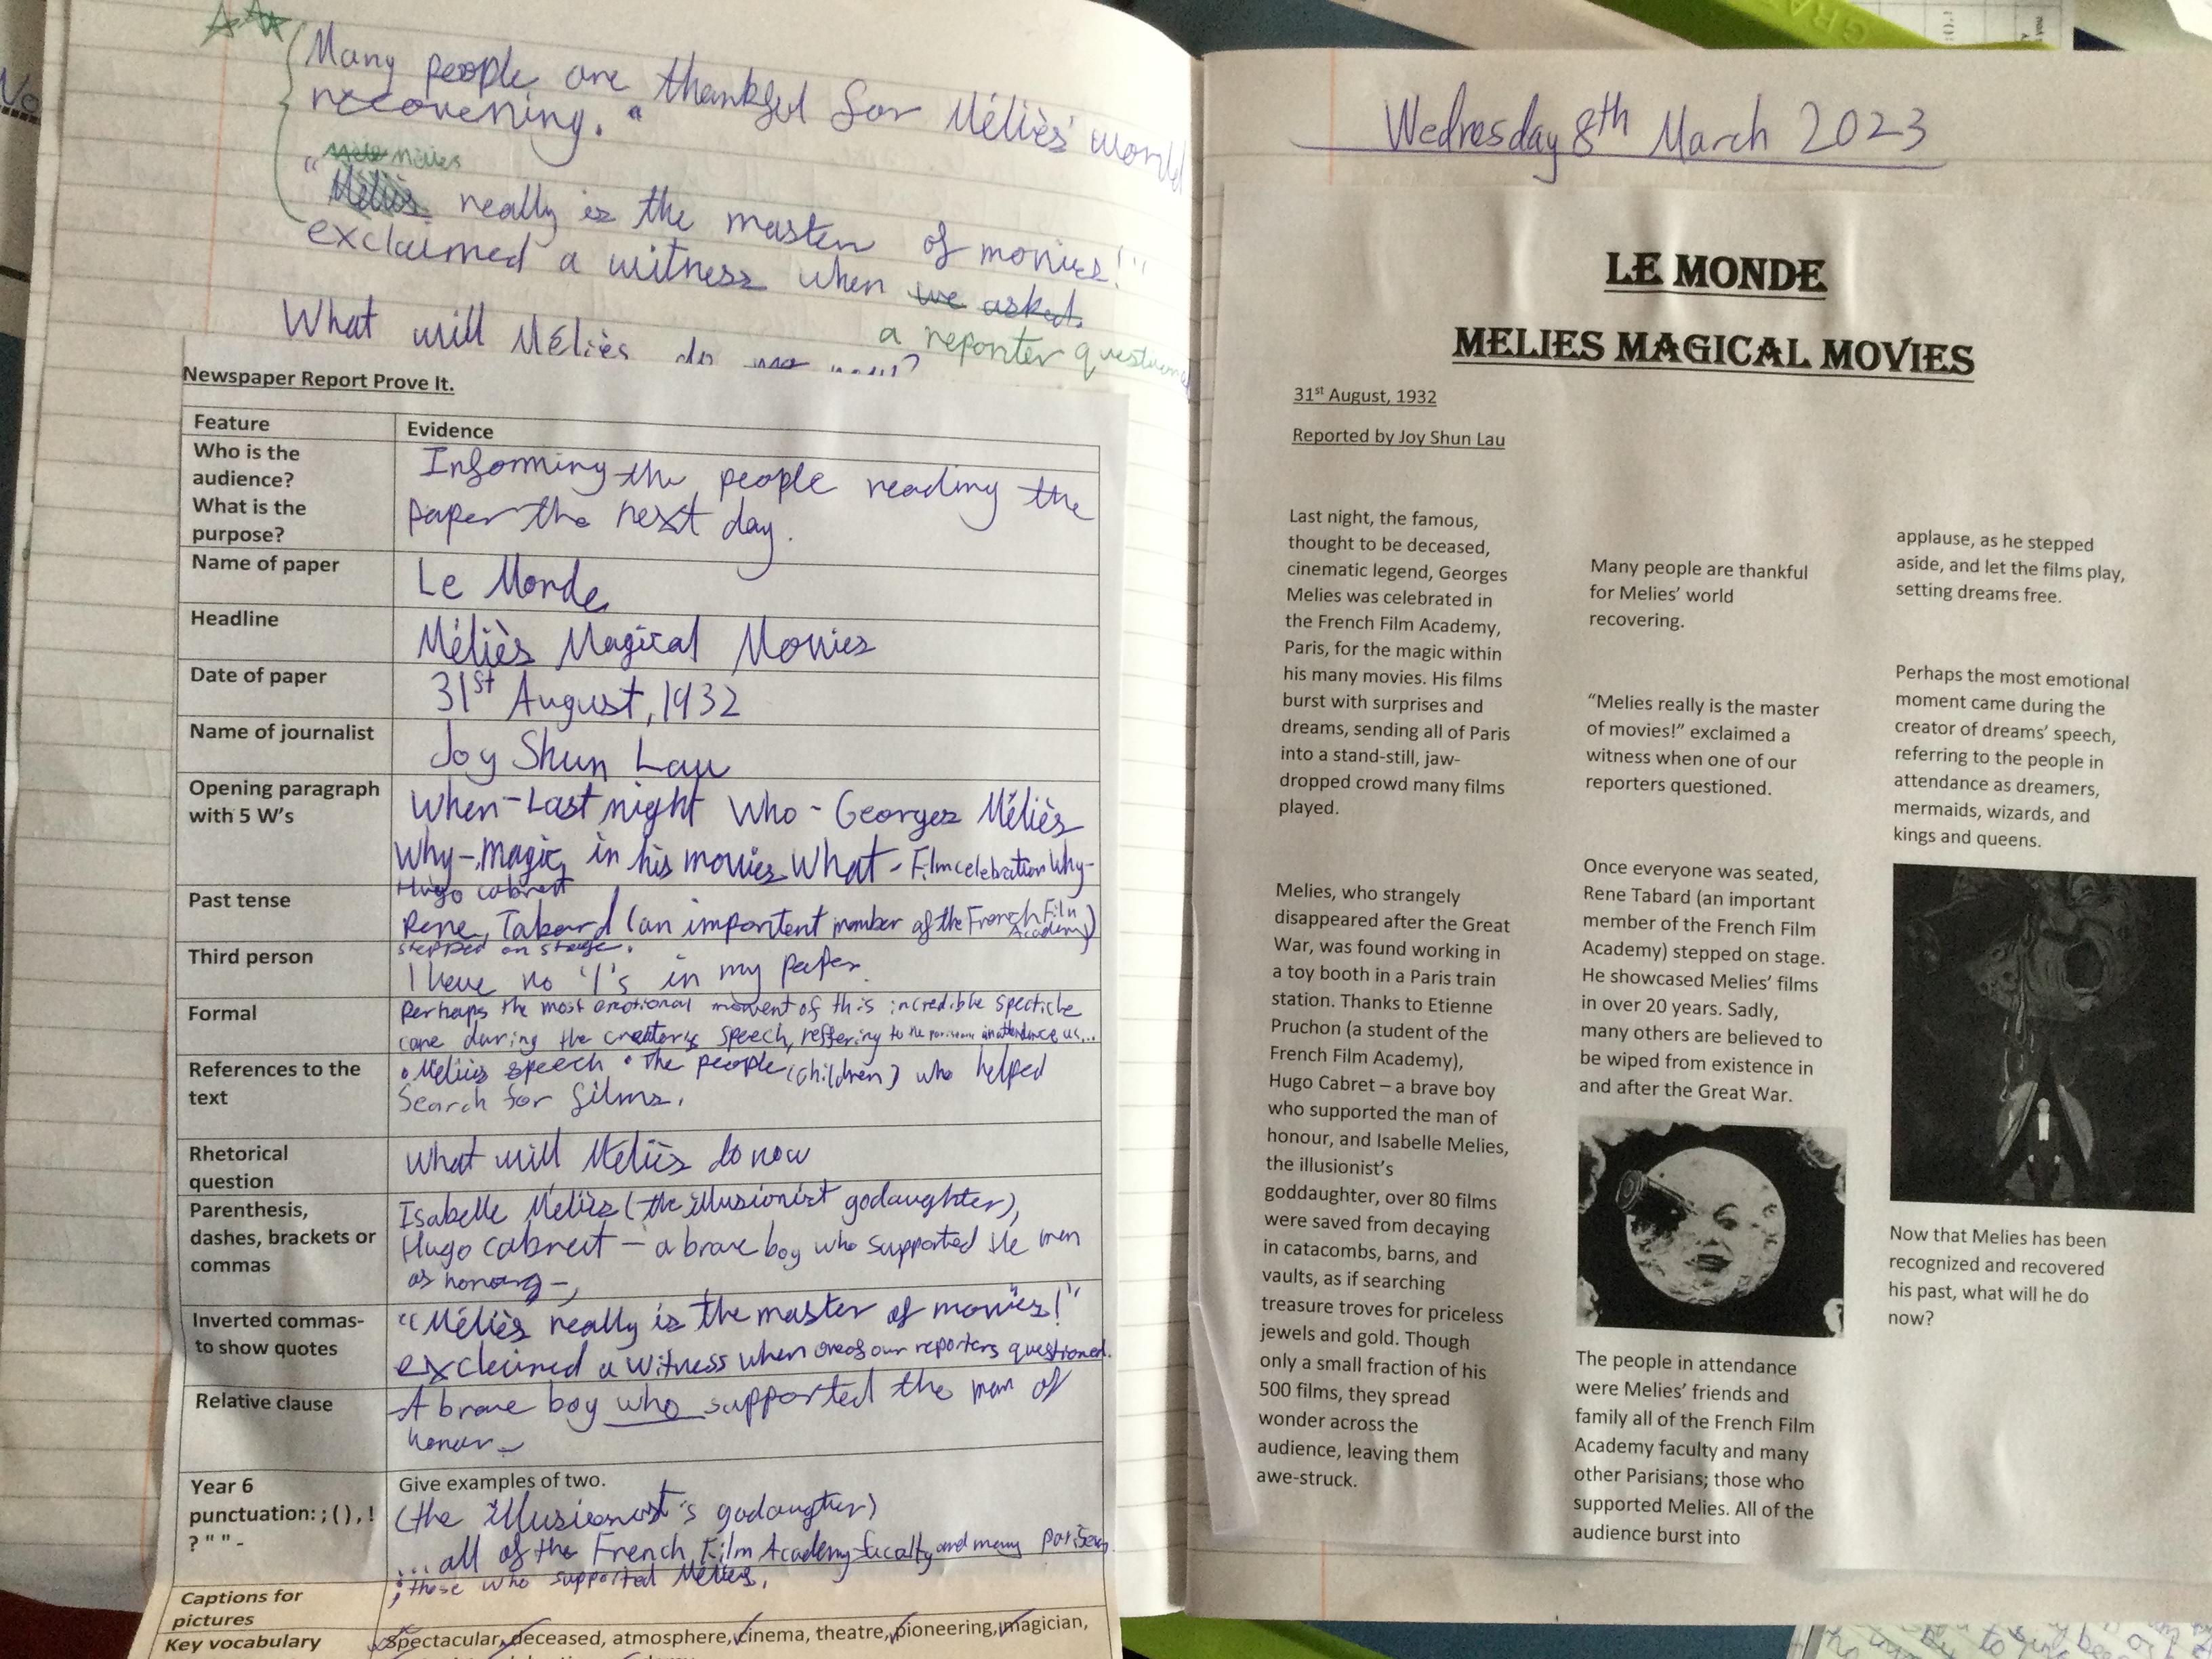 Many people are thankful for Méliès' world
recovering."
"Méliès really is the master of movies!"
exclaimed a witness when we asked.
a reporter
What will Méliès do now?
Newspaper Report Prove It.
Feature Evidence
Who is the audience? What is the purpose?
Informing the people reading the
paper the next day.
Name of paper
Le Monde
Headline
Méliès Magical Movies
Date of paper
31st August, 1932
Name of journalist
Joy Shun Lau
Opening paragraph with 5 W's
When-Last night Who - Georges Méliès
Why-Magic in his movies What - Film celebration Why-
Hugo cabret
Past tense
Rene Tabard (an important member of the French Film Academy)
stepped on stage.
Third person
I have no 'I's in my paper.
Formal
Perhaps the most emotional moment of this incredible
came during the creator's speech, reffering to the in attendance as...
References to the text
• Méliès speech • The people (children) who helped
Search for films.
Rhetorical question
What will Méliès do now
Parenthesis, dashes, brackets or commas
Isabelle Méliès (the illusionist godaughter),
Hugo Cabret — a brave boy who supported the men
Inverted commas- to show quotes
"Méliès really is the master of movies!"
exclaimed a witness when one of our reporters questioned.
Relative clause
A brave boy who supported the man of
honour —
Year 6 punctuation: ; ( ) , ! ? " " -
Give examples of two.
(the illusionist's godaughter)
...all of the French Film Academy faculty and many
; those who supported Méliès.
Captions for pictures
Key vocabulary
spectacular, deceased, atmosphere, cinema, theatre, pioneering, magician,
Wednesday 8th March 2023
LE MONDE
MELIES MAGICAL MOVIES
31st August, 1932
Reported by Joy Shun Lau
Last night, the famous,
thought to be deceased,
cinematic legend, Georges
Melies was celebrated in
the French Film Academy,
Paris, for the magic within
his many movies. His films
burst with surprises and
dreams, sending all of Paris
into a stand-still, jaw-
dropped crowd many films
played.
Melies, who strangely
disappeared after the Great
War, was found working in
a toy booth in a Paris train
station. Thanks to Etienne
Pruchon (a student of the
French Film Academy),
Hugo Cabret – a brave boy
who supported the man of
honour, and Isabelle Melies,
the illusionist's
goddaughter, over 80 films
were saved from decaying
in catacombs, barns, and
vaults, as if searching
treasure troves for priceless
jewels and gold. Though
only a small fraction of his
500 films, they spread
wonder across the
audience, leaving them
awe-struck.
Many people are thankful
for Melies' world
recovering.
"Melies really is the master
of movies!" exclaimed a
witness when one of our
reporters questioned.
Once everyone was seated,
Rene Tabard (an important
member of the French Film
Academy) stepped on stage.
He showcased Melies' films
in over 20 years. Sadly,
many others are believed to
be wiped from existence in
and after the Great War.
The people in attendance
were Melies' friends and
family all of the French Film
Academy faculty and many
other Parisians; those who
supported Melies. All of the
audience burst into
applause, as he stepped
aside, and let the films play,
setting dreams free.
Perhaps the most emotional
moment came during the
creator of dreams' speech,
referring to the people in
attendance as dreamers,
mermaids, wizards, and
kings and queens.
Now that Melies has been
recognized and recovered
his past, what will he do
now?